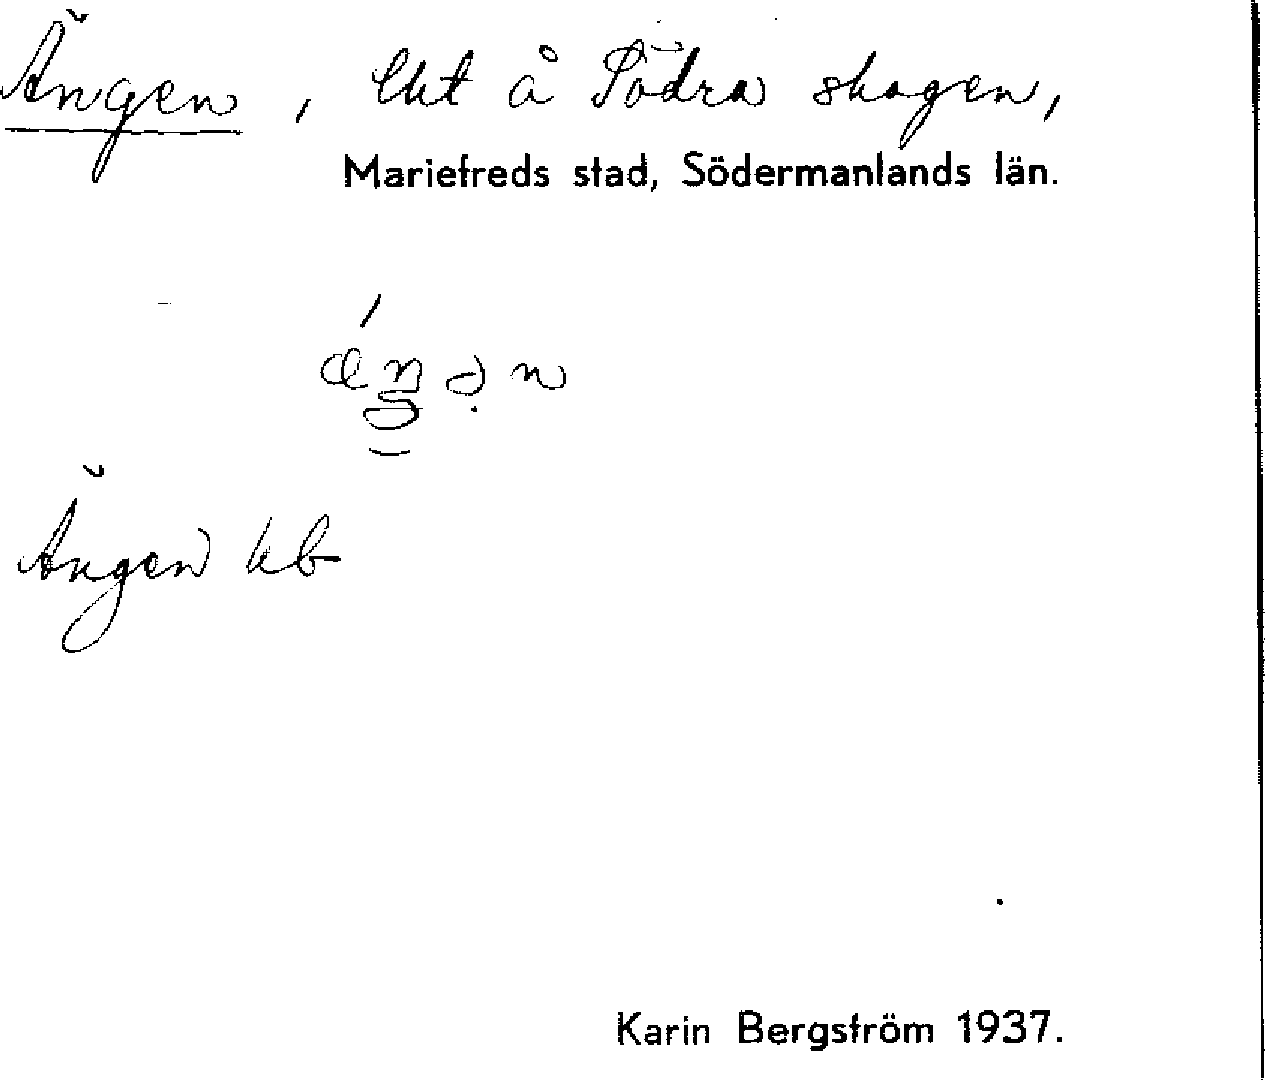 Ängen, lht å Södra skogen,
Mariefreds stad, Södermanlands län.
Ängen kb
Karin Bergström 1937.